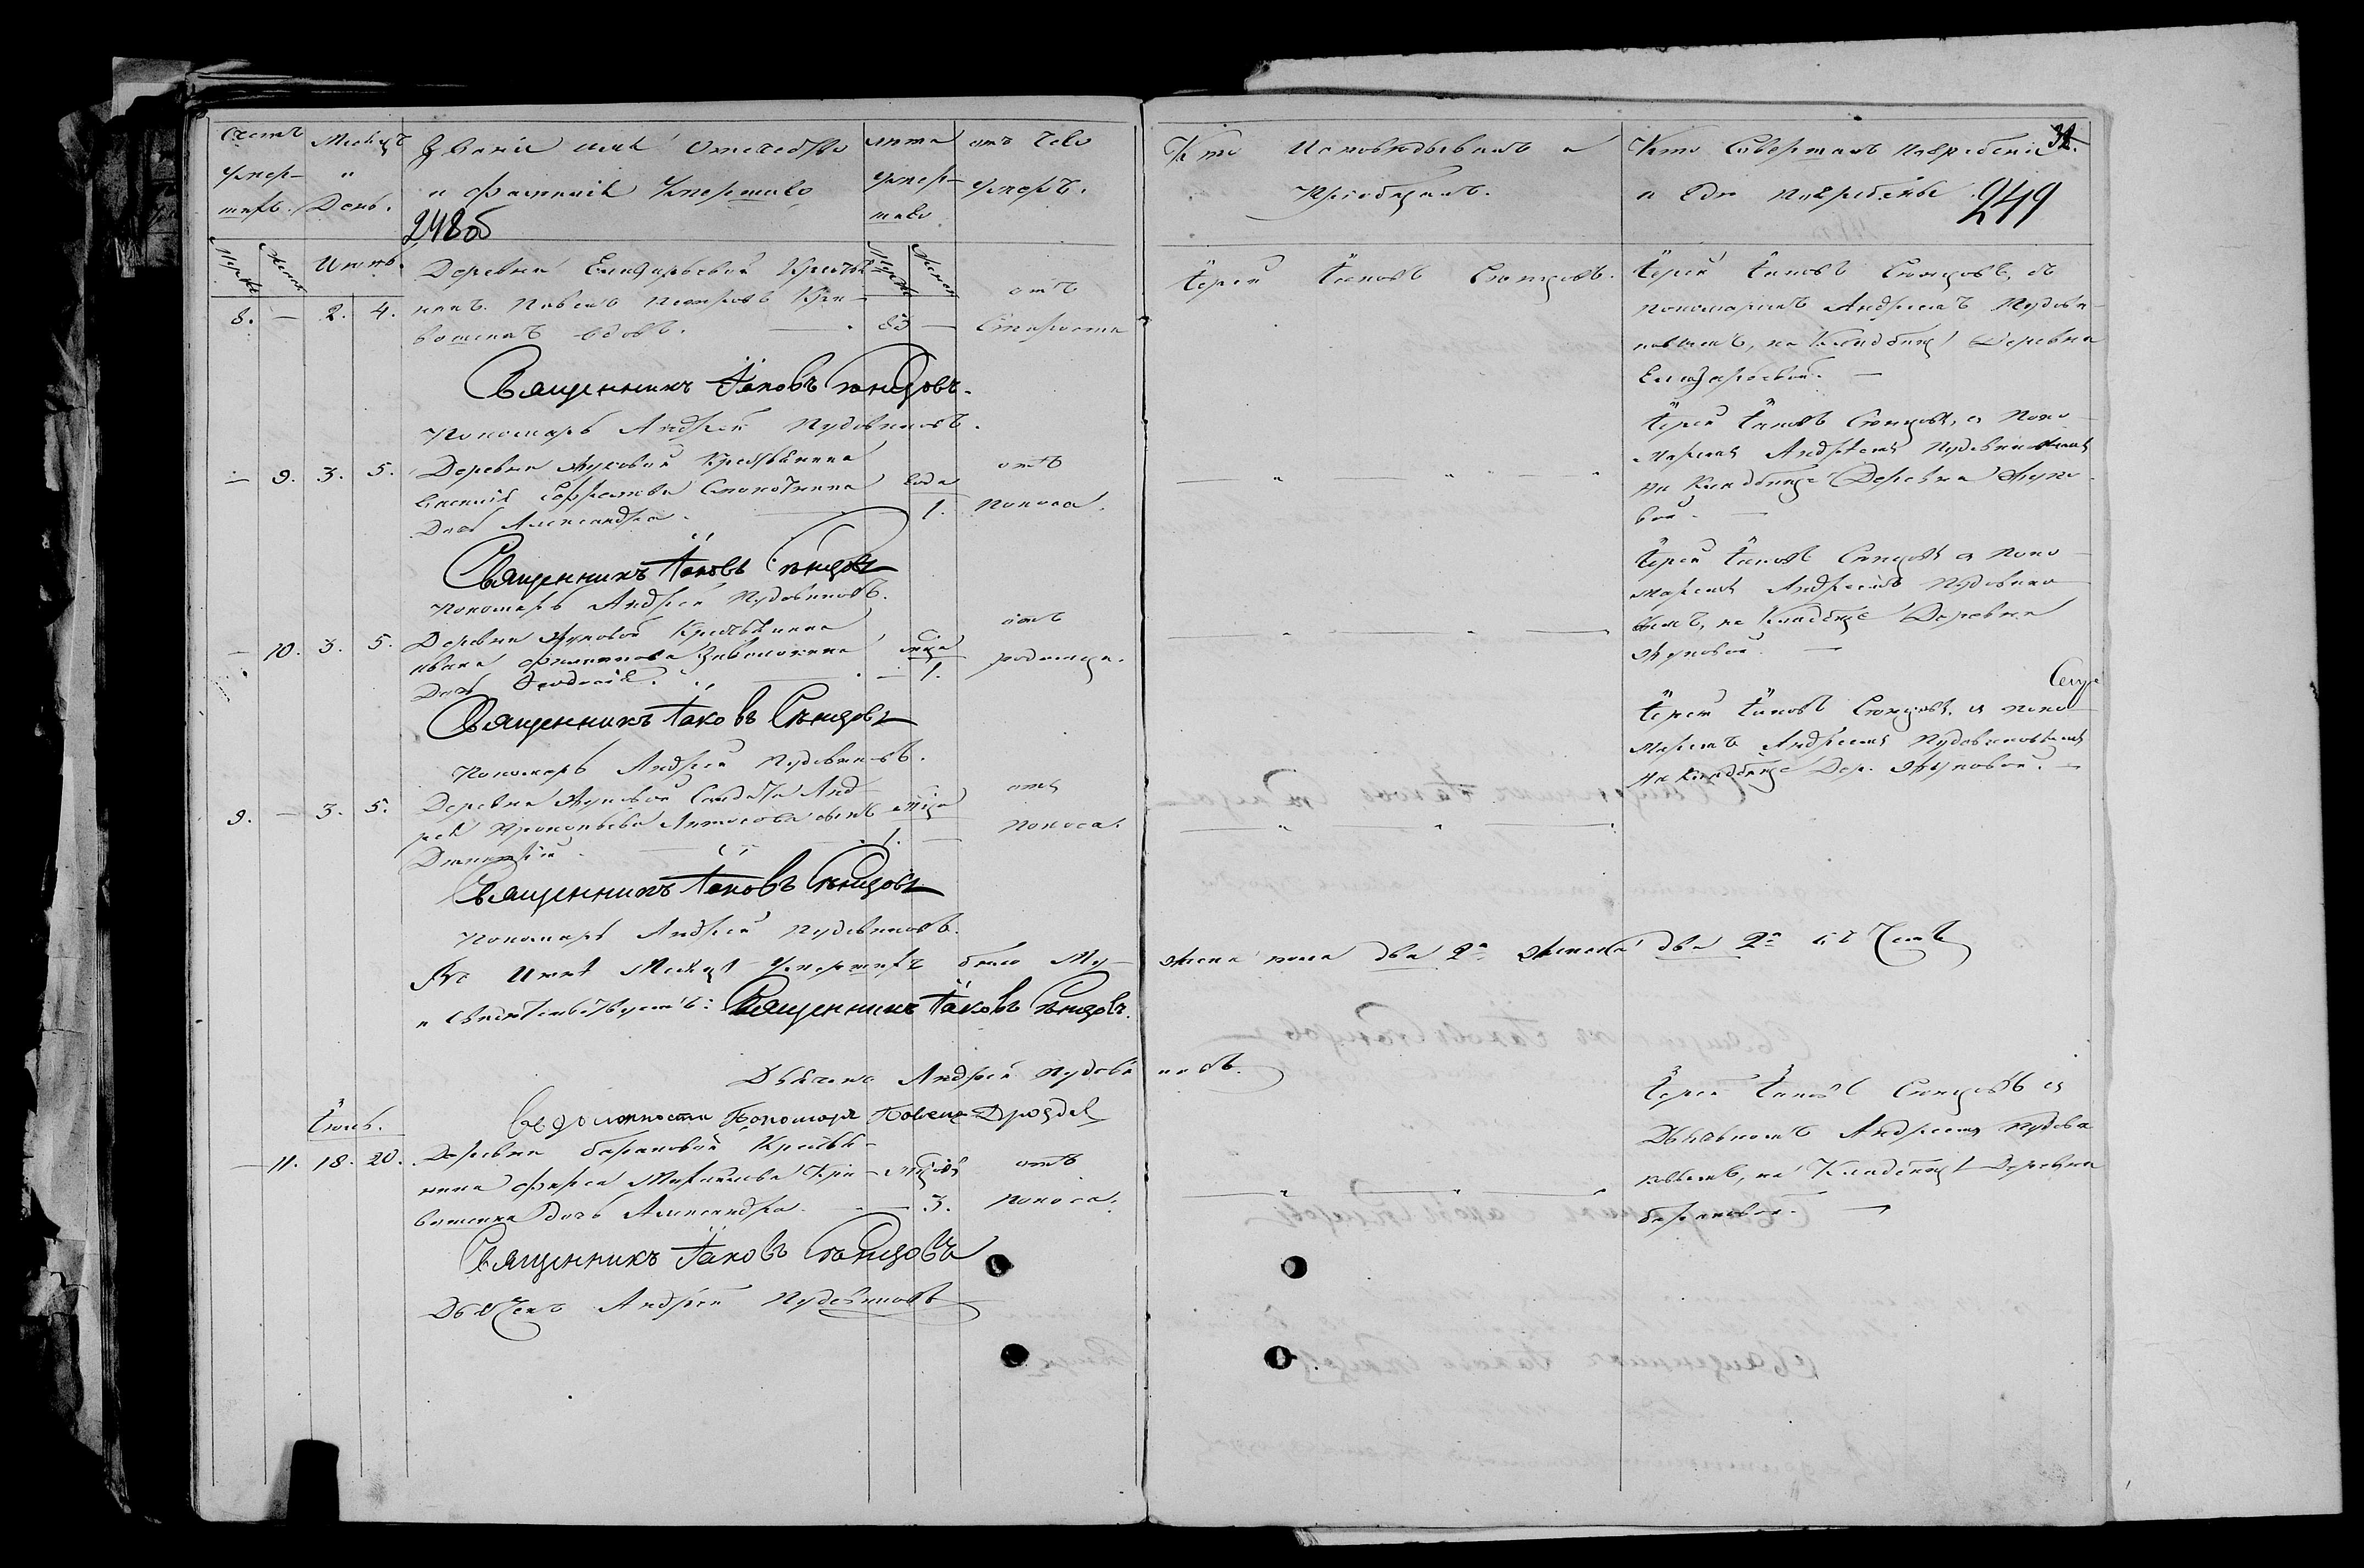 Счетъ
умер-
шихъ.
Месяцъ
и
День.
Званіе имя Отечество
и фамилія Умершаго
248об
лета
умер-
шаго
отъ чего
умеръ.
Кто Исповѣдывалъ и
Пріобщалъ.
Кто Совершалъ погребеніе
и Где погребены
31.
249
Іюнь.
8. — 2. 4.
Деревни Елизарьевой Крестья
нинъ Павелъ Петровъ Кри-
вошеинъ вдовъ.
83 —
отъ
Старости
Іерей Іаковъ Стенцовъ.
Іерей Іаковъ Стенцовъ, съ
пономаремъ Андреемъ Пудови-
новымъ, на Кладбищѣ Деревни
Елизарьевой. —
Священникъ Іаковъ Стенцовъ.
Пономарь Андрей Пудовиновъ.
— 9. 3. 5.
Деревни Жуковой Крестьянина
Василія Ефремова
Дочь Александра.
года
1.
отъ
поноса.
Іерей Іаковъ Стенцовъ, съ Поно
маремъ Андреемъ Пудовиновымъ
на Кладбище Деревни Жуко
вой. —
Священникъ Іаковъ Стенцовъ
Пономарь Андрей Пудовиновъ.
— 10. 3. 5.
Деревни Жуковой Крестьянина
Ивана Филиппова
Дочь
— 1.
отъ
родимца.
Іерей Іаковъ Стенцовъ съ Поно
маремъ Андреемъ Пудовино
вымъ, на Кладбище Деревни
Жуковой. —
Священникъ Іаковъ Стенцовъ
Пономарь Андрей Пудовиновъ.
9. — 3. 5.
Деревни Жуковой Солдата Анд
рея Прокопьева сынъ
Димитрій.
1. —
отъ
поноса.
Іерей Іаковъ Стенцовъ, съ поно
маремъ Андреемъ Пудовиновымъ
на Кладбище Дер. Жуковой. —
Священникъ Іаковъ Стенцовъ
Пономарь Андрей Пудовиновъ.
Въ Іюне Месяце Умершихъ было Му-
жска пола два 2- Женска два 2-
и свидетельствуетъ: Священникъ Іаковъ Стенцовъ.
Дьячекъ Андрей Пудовиновъ.
Въ должности Пономаря Павелъ
Іюль.
— 11. 18. 20.
Деревни Барановой Крестья-
нина Михайлова Кри-
вошеина дочь Александра.
3.
отъ
поноса.
Іерей Іаковъ Стенцовъ съ
Дьячкомъ Андреемъ Пудови
новымъ, на Кладбище Деревни
Барановой. —
Священникъ Іаковъ Стенцовъ
Дьячекъ Андрей Пудовиновъ